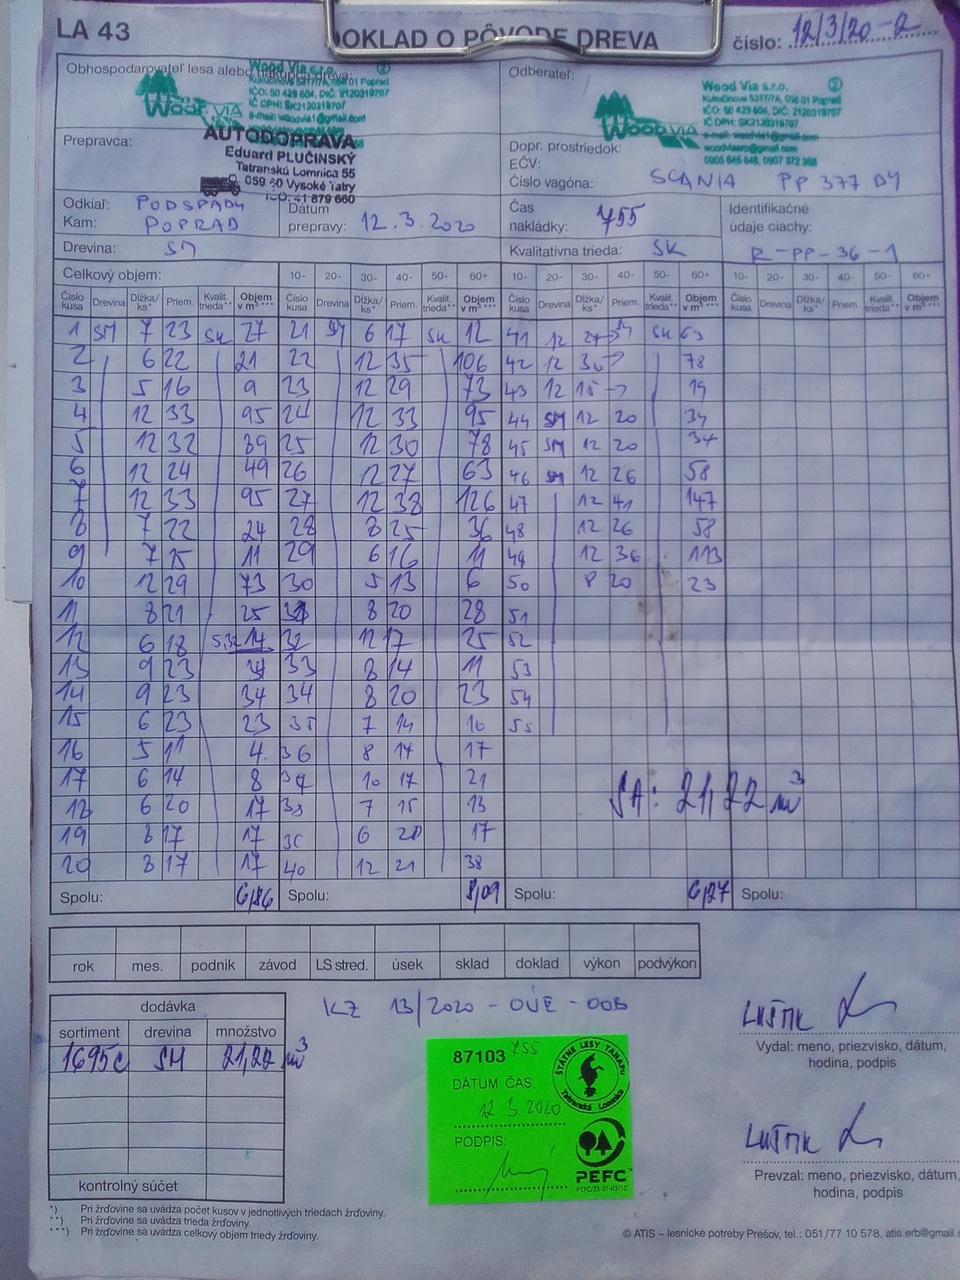 LA 43
DOKLAD O PÔVODE DREVA
číslo: 12/3/20-2
Obhospodarovateľ lesa alebo nákupca dreva:
Wood Via s.r.o.
Kukučínova 5317/7A, 058 01 Poprad
IČO: 50 429 604, DIČ: 2120319707
IČ DPH: SK2120319707
e-mail: woodvia1@gmail.com
Wood VIA
Odberateľ:
Wood Via s.r.o. 2
Kukučínova 5317/7A, 058 01 Poprad
IČO: 50 429 604, DIČ: 2120319707
IČ DPH: SK2120319707
e-mail: woodvia1@gmail.com
woodviasro@gmail.com
0905 646 648, 0907 372 368
Wood VIA
Prepravca:
AUTODOPRAVA
Eduard PLUČINSKÝ
Tatranská Lomnica 55
059 60 Vysoké Tatry
IČO: 41 879 660
Dopr. prostriedok:
EČV:
Číslo vagóna: SCANIA PP 377 DY
Odkiaľ: PODSPÁDY
Kam: POPRAD
Dátum
prepravy: 12.3.2020
Čas
nakládky: 755
Identifikačné
údaje ciachy:
R-PP-36-1
Drevina: SM
Kvalitatívna trieda: SK
Celkový objem: 10- 20- 30- 40- 50- 60+ 10- 20- 30- 40- 50- 60+ 10- 20- 30- 40- 50- 60+
Číslo kusa Drevina Dĺžka/ks* Priem. Kvalit. trieda** Objem v m³*** Číslo kusa Drevina Dĺžka/ks* Priem. Kvalit. trieda** Objem v m³*** Číslo kusa Drevina Dĺžka/ks* Priem. Kvalit. trieda** Objem v m³*** Číslo kusa Drevina Dĺžka/ks* Priem. Kvalit. trieda** Objem v m³***
1 SM 7 23 SK 27 21 SM 6 17 SK 12 41 12 27 SK 63
2 6 22 21 22 12 35 106 42 12 30 78
3 5 16 9 23 12 29 73 43 12 15 19
4 12 33 95 24 12 33 95 44 SM 12 20 34
5 12 32 89 25 12 30 78 45 SM 12 20 34
6 12 24 49 26 12 27 63 46 SM 12 26 58
7 12 33 95 27 12 38 126 47 12 41 147
8 7 22 24 28 8 25 36 48 12 26 58
9 7 15 11 29 6 16 11 49 12 36 113
10 12 29 73 30 5 13 6 50 8 20 23
11 8 21 25 31 8 20 28 51
12 6 18 14 32 12 17 25 52
13 9 23 34 33 8 14 11 53
14 9 23 34 34 8 20 23 54
15 6 23 23 35 7 14 10 55
16 5 11 4 36 8 17 17
17 6 14 8 37 10 17 21
18 6 20 17 38 7 15 13
19 8 17 17 39 6 20 17
20 8 17 17 40 12 21 38
SA: 21,22 m³
Spolu: 6,86 Spolu: 8,09 Spolu: 6,27 Spolu:
rok mes. podnik závod LS stred. úsek sklad doklad výkon podvýkon
dodávka
sortiment drevina množstvo
1695C SM 21,22 m³
kontrolný súčet
KZ 13/2020 - OÚE - OOB
87103 755
DÁTUM: ČAS:
12.3 2020
PODPIS:
ŠTÁTNE LESY TANAPU
Tatranská Lomnica
PEFC
PEFC/23-21-03/10
LUŠTIK
Vydal: meno, priezvisko, dátum,
hodina, podpis
LUŠTIK
Prevzal: meno, priezvisko, dátum,
hodina, podpis
*) Pri žrďovine sa uvádza počet kusov v jednotlivých triedach žrďoviny.
**) Pri žrďovine sa uvádza trieda žrďoviny.
***) Pri žrďovine sa uvádza celkový objem triedy žrďoviny.
© ATIS – lesnícke potreby Prešov, tel.: 051/77 10 578, atis.erb@gmail.